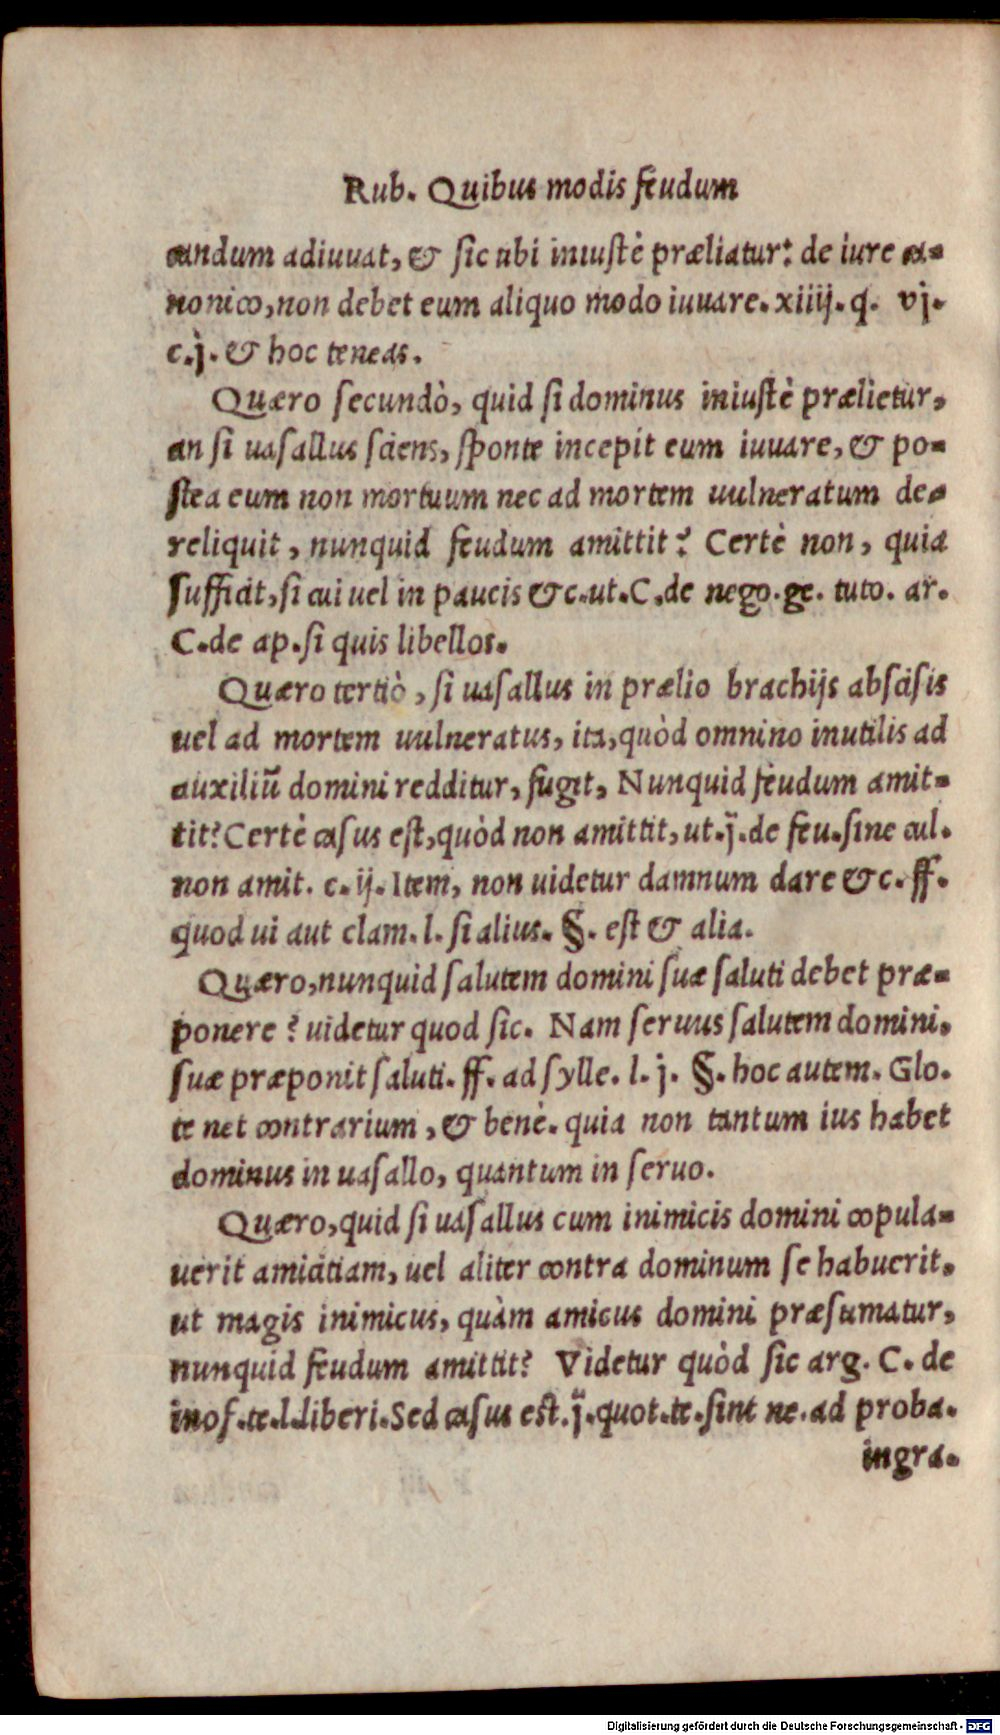 Rub. Quibus modis feudum
candum adiuuat, & sic ubi iniustè præliatur: de iure ca-
nonico, non debet eum aliquo modo iuuare. xiiij. q. vj.
c. j. & hoc teneas.
Quæro secundò, quid si dominus iniustè prælietur,
an si uasallus sciens, sponte incepit eum iuuare, & po-
stea eum non mortuum nec ad mortem uulneratum de-
reliquit, nunquid feudum amittit? Certè non, quia
sufficit, si cui uel in paucis &c. ut. C. de nego. ge. tuto. ar.
C. de ap. si quis libellos.
Quæro tertiò, si uasallus in prælio brachijs abscisis
uel ad mortem uulneratus, ita, quòd omnino inutilis ad
auxiliū domini redditur, fugit, Nunquid feudum amit-
tit? Certè casus est, quòd non amittit, ut. j̈. de feu. sine cul.
non amit. c. ij. Item, non uidetur damnum dare &c. ff.
quod ui aut clam. l. si alius. §. est & alia.
Quæro, nunquid salutem domini suæ saluti debet præ-
ponere? uidetur quod sic. Nam seruus salutem domini.
suæ præponit saluti. ff. ad sylle. l. j. §. hoc autem. Glo.
te net contrarium, & benè. quia non tantum ius habet
dominus in uasallo, quantum in seruo.
Quæro, quid si uasallus cum inimicis domini copula-
uerit amicitiam, uel aliter contra dominum se habuerit.
ut magis inimicus, quàm amicus domini præsumatur,
nunquid feudum amittit? Videtur quòd sic arg. C. de
inof. te. l. liberi. Sed casus est. j̈. quot. te. sint ne. ad proba.
ingra.
Digitalisierung gefördert durch die Deutsche Forschungsgemeinschaft - DFG